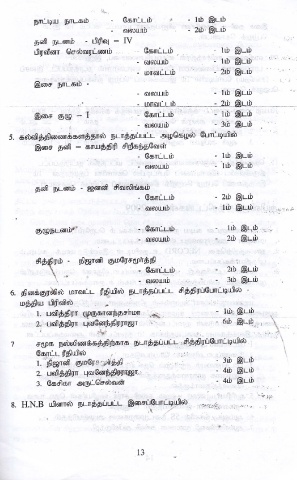 நாட்டிய நாடகம் - கோட்டம் - 1ம் இடம்
- வலயம் - 2ம் இடம்
தனி நடனம் - பிரிவு – IV
பிரவீனா செல்வரட்ணம் - கோட்டம் - 1ம் இடம்
- வலயம் - 1ம் இடம்
- மாவட்டம் - 2ம் இடம்
இசை நாடகம் -
- வலயம் - 1ம் இடம்
- மாவட்டம் - 2ம் இடம்
இசை குழு – I - கோட்டம் - 1ம் இடம்
- வலயம் - 3ம் இடம்
5. கல்வித்திணைக்களத்தால் நடாத்தப்பட்ட அழகேழில் போட்டியில்
இசை தனி – காயத்திரி சிறீகந்தவேள்
- கோட்டம் - 1ம் இடம்
- வலயம் - 1ம் இடம்
தனி நடனம் - ஜனனி சிவலிங்கம்
- கோட்டம் - 2ம் இடம்
- வலயம் - 1ம் இடம்
குழுநடனம் - கோட்டம் - 1ம் இடம்
- வலயம் - 2ம் இடம்
சித்திரம் - நிஜானி குமரேசமூர்த்தி
- கோட்டம் - 2ம் இடம்
- வலயம் - 3ம் இடம்
6. தினக்குரலில் மாவட்ட ரீதியில் நடாத்தப்பட்ட சித்திரப்போட்டியில் -
மத்திய பிரிவில்
1. பவித்திரா முருகானந்தசர்மா - 1ம் இடம்
2. பவித்திரா புவனேந்திரராஜா - 6ம் இடம்
7 சமூக நல்லிணக்கத்திற்காக நடாத்தப்பட்ட சித்திரப்போட்டியில்
கோட்ட ரீதியில்
1. நிஜானி - 3ம் இடம்
2. பவித்திரா புவனேந்திரராஜா - 4ம் இடம்
3. கேசிகா அருட்செல்வன் - 4ம் இடம்
8. H.N.B யினால் நடாத்தப்பட்ட இசைப்போட்டியில்
13